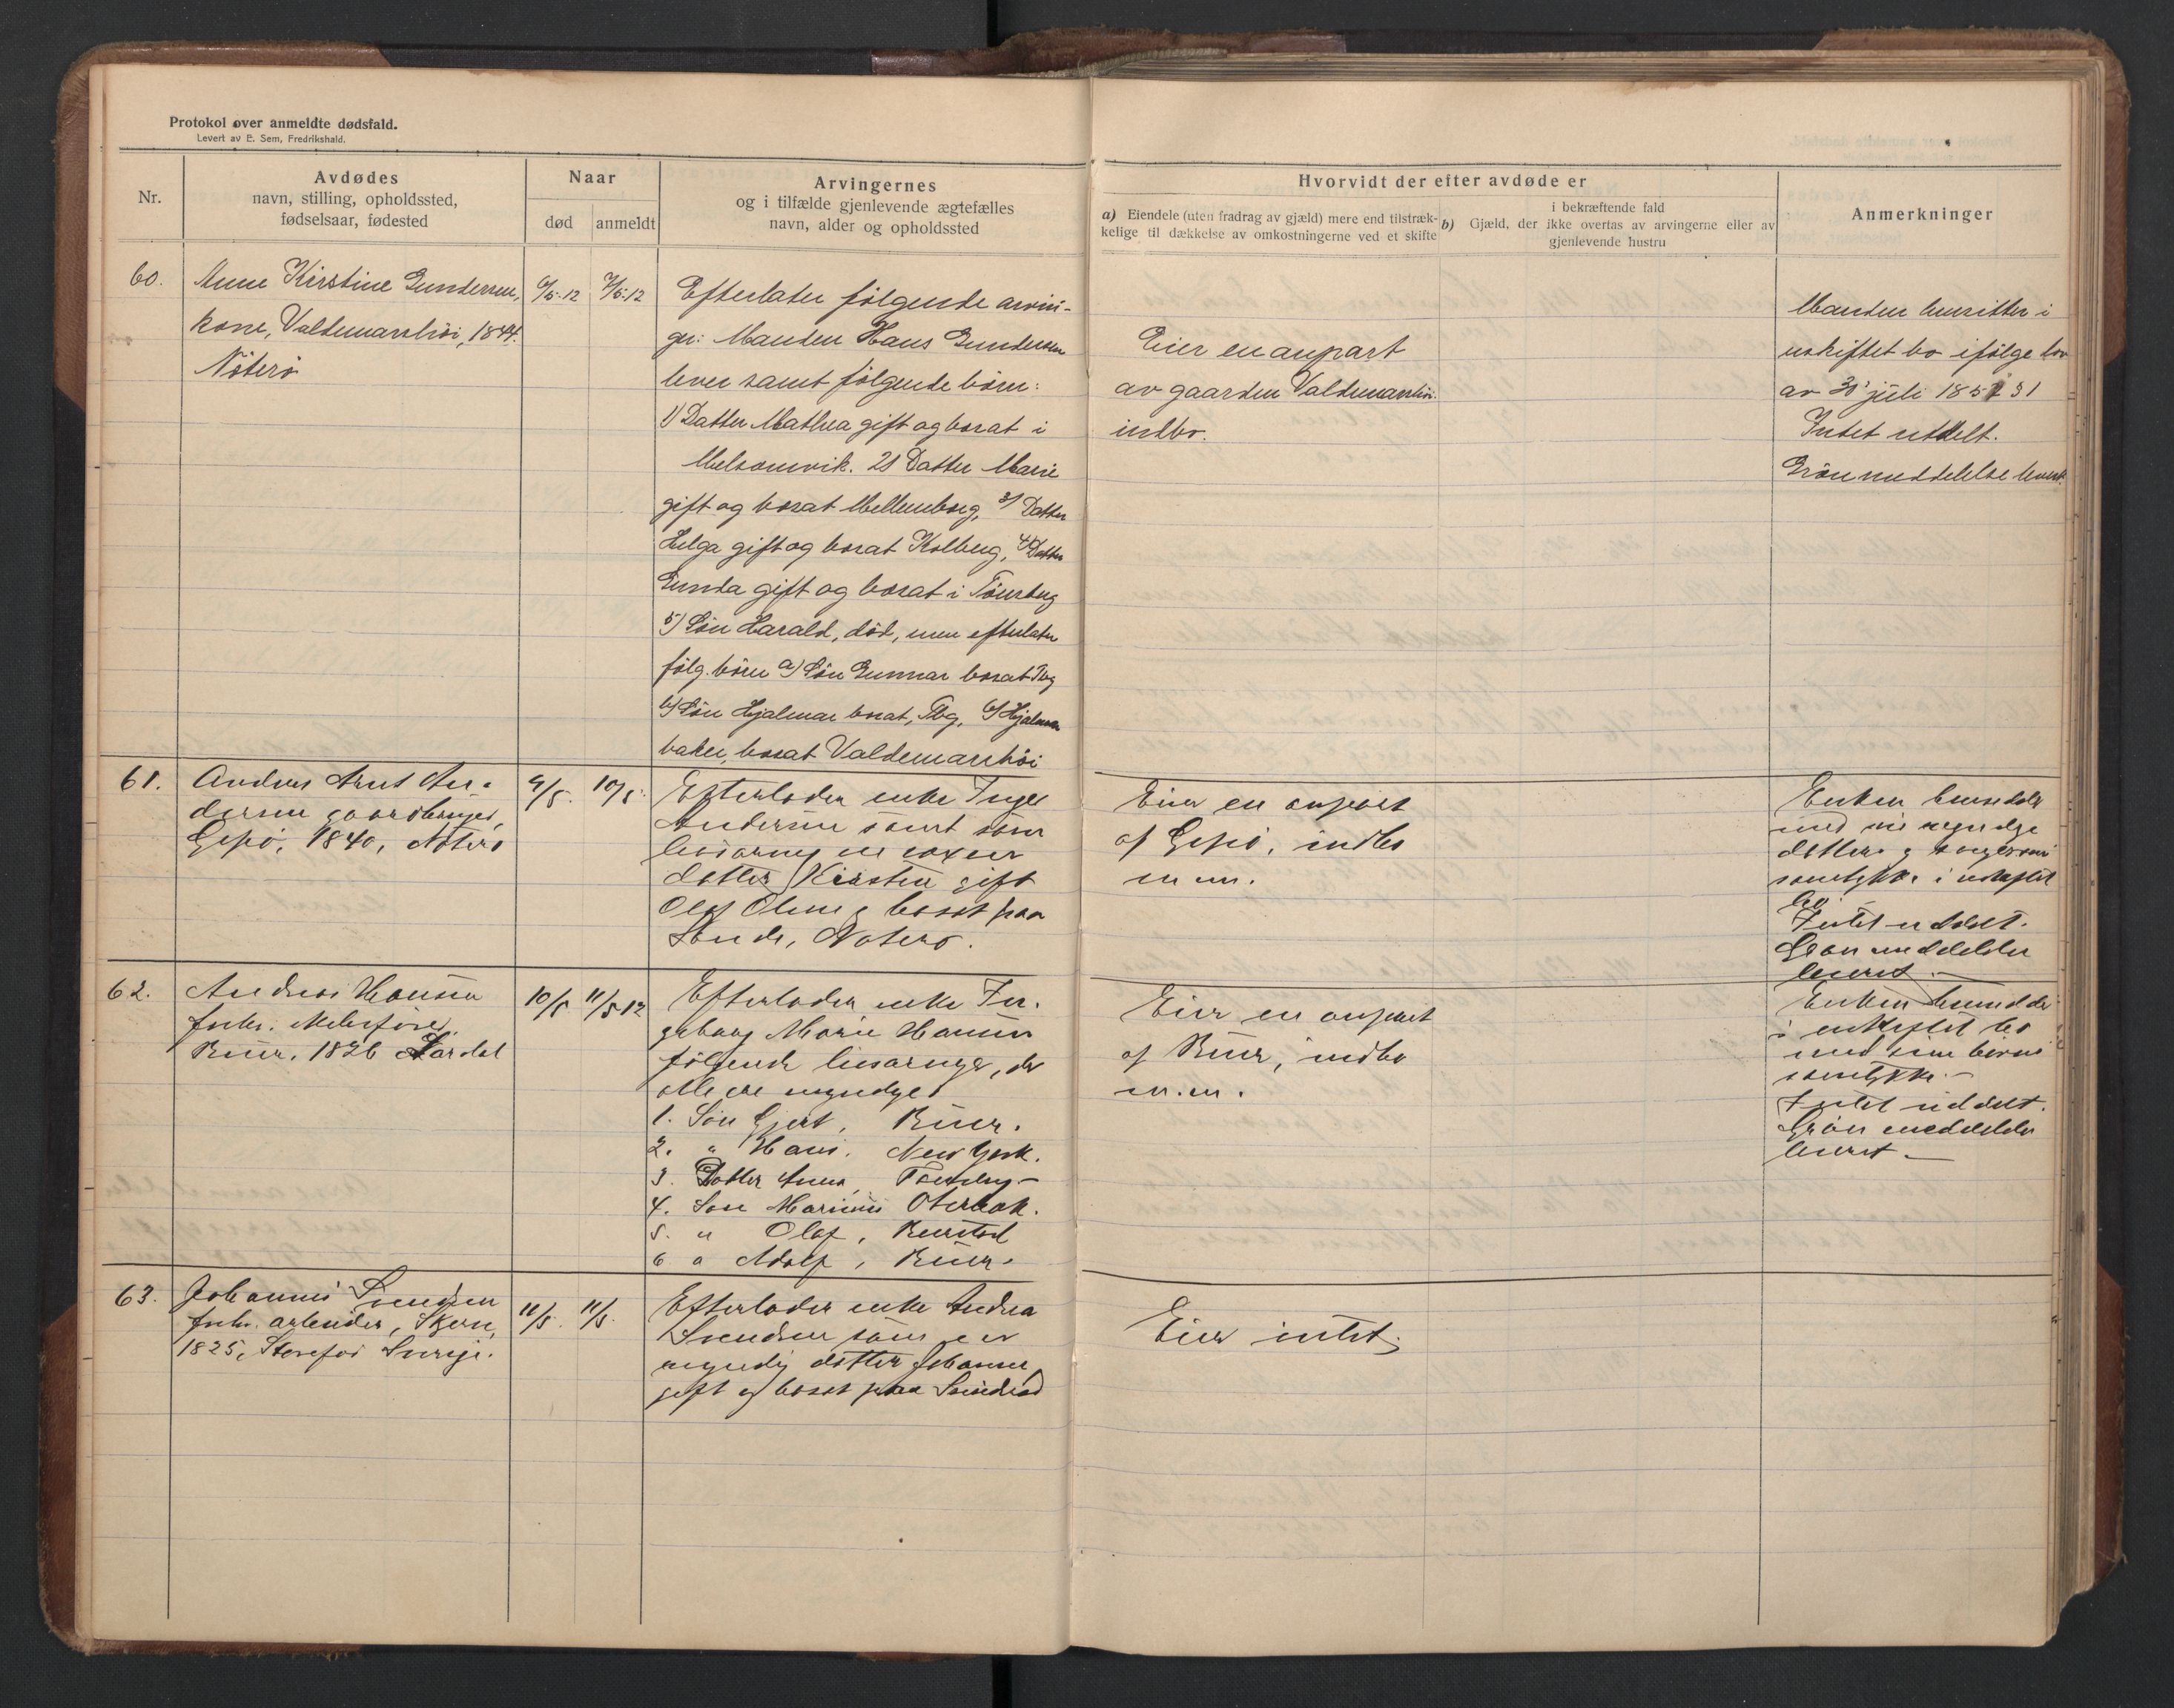 Protokol over anmeldte dødsfald.
Levert av E. Sem, Fredrikshald.
Nr.
Avdødes
navn, stilling, opholdssted,
fødselsaar, fødested
Naar
død
anmeldt
Arvingernes
og i tilfælde gjenlevende ægtefælles
navn, alder og opholdssted
Hvorvidt der efter avdøde er
a) Eiendele (uten fradrag av gjæld) mere end tilstræk-
kelige til dækkelse av omkostningerne ved et skifte
i bekræftende fald
b) Gjæld, der ikke overtas av arvingerne eller av
gjenlevende hustru
Anmerkninger
60.
Anne Kirstine Gundersen,
kone, Valdemarshøi, 1844.
Nøterø
6/5-12
7/5-12
Efterlater følgende arvin-
ger: Manden Hans Gundersen
lever samt følgende børn:
1) Datter Mathea gift og bosat i
Melsomvik. 2) Datter Marie
gift og bosat Mellemborg, 3) Datter
Helga gift og bosat Kolberg, 4) Datter
Gunda gift og bosat i Tønsberg
5) Søn Harald, død, men efterlater
følg. børn a) Søn Gunnar bosat Tbg
b) Søn Hjalmar bosat, Tbg, 6) Hjalmar
bosat Valdemarshøi
Eier en anpart
av gaarden Valdemarshøi.
indbo.
Manden hensitter i
uskiftet bo ifølge lov
av 30' juli 1851
Intet utdelt.
Grøn meddelelse levert.
61.
Anders Arnt An-
dersen gaardbruger,
Gipø, 1840, Nøterø
9/5.
10/5.
Efterlader enke Inger
Andersen samt som
livsarving en voxen
datter Kirsten gift
Olaf Olsen & bosat paa
Sande, Nøterø.
Eier en anpart
af Gipø, indbo
m.m.
Enken hensidder
med sin myndige
datters & svigersøns
samtykke i uskiftet
bo
Intet uddelt.
Grøn meddelelse
levert.-
62.
Andreas Hansen
forhv.
Buer, 1826 Lardal
10/5
11/5-12
Efterlader enke In-
geborg Marie Hansen
følgende livsarvinger, der
alle ere myndige
1. Søn Gjert, Buer.
2. " Hans, New York.
3. Datter Anna, Tønsberg-
4. Søn Marinus Oterbæk.
5. " Olaf, Buerstad
6 " Adolf, Buer.
Eier en anpart
af Buer, indbo
m.m.
Enken hensidder
i uskiftet bo
med sine børns
samtykke.-
Intet uddelt.
Grøn meddelelse
levert.-
63.
Johannes Svendsen
forhv. arbeider, Skjern,
1825, Sverige.
11/5.
11/5.
Efterlader enke Andrea
Svendsen samt en
myndig datter Johanne,
gift & bosat paa
Eier intet.